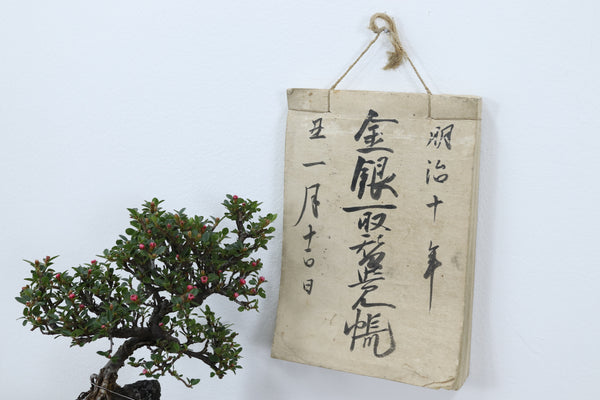 明治十年
金銀取替覚帳
丑一月吉日